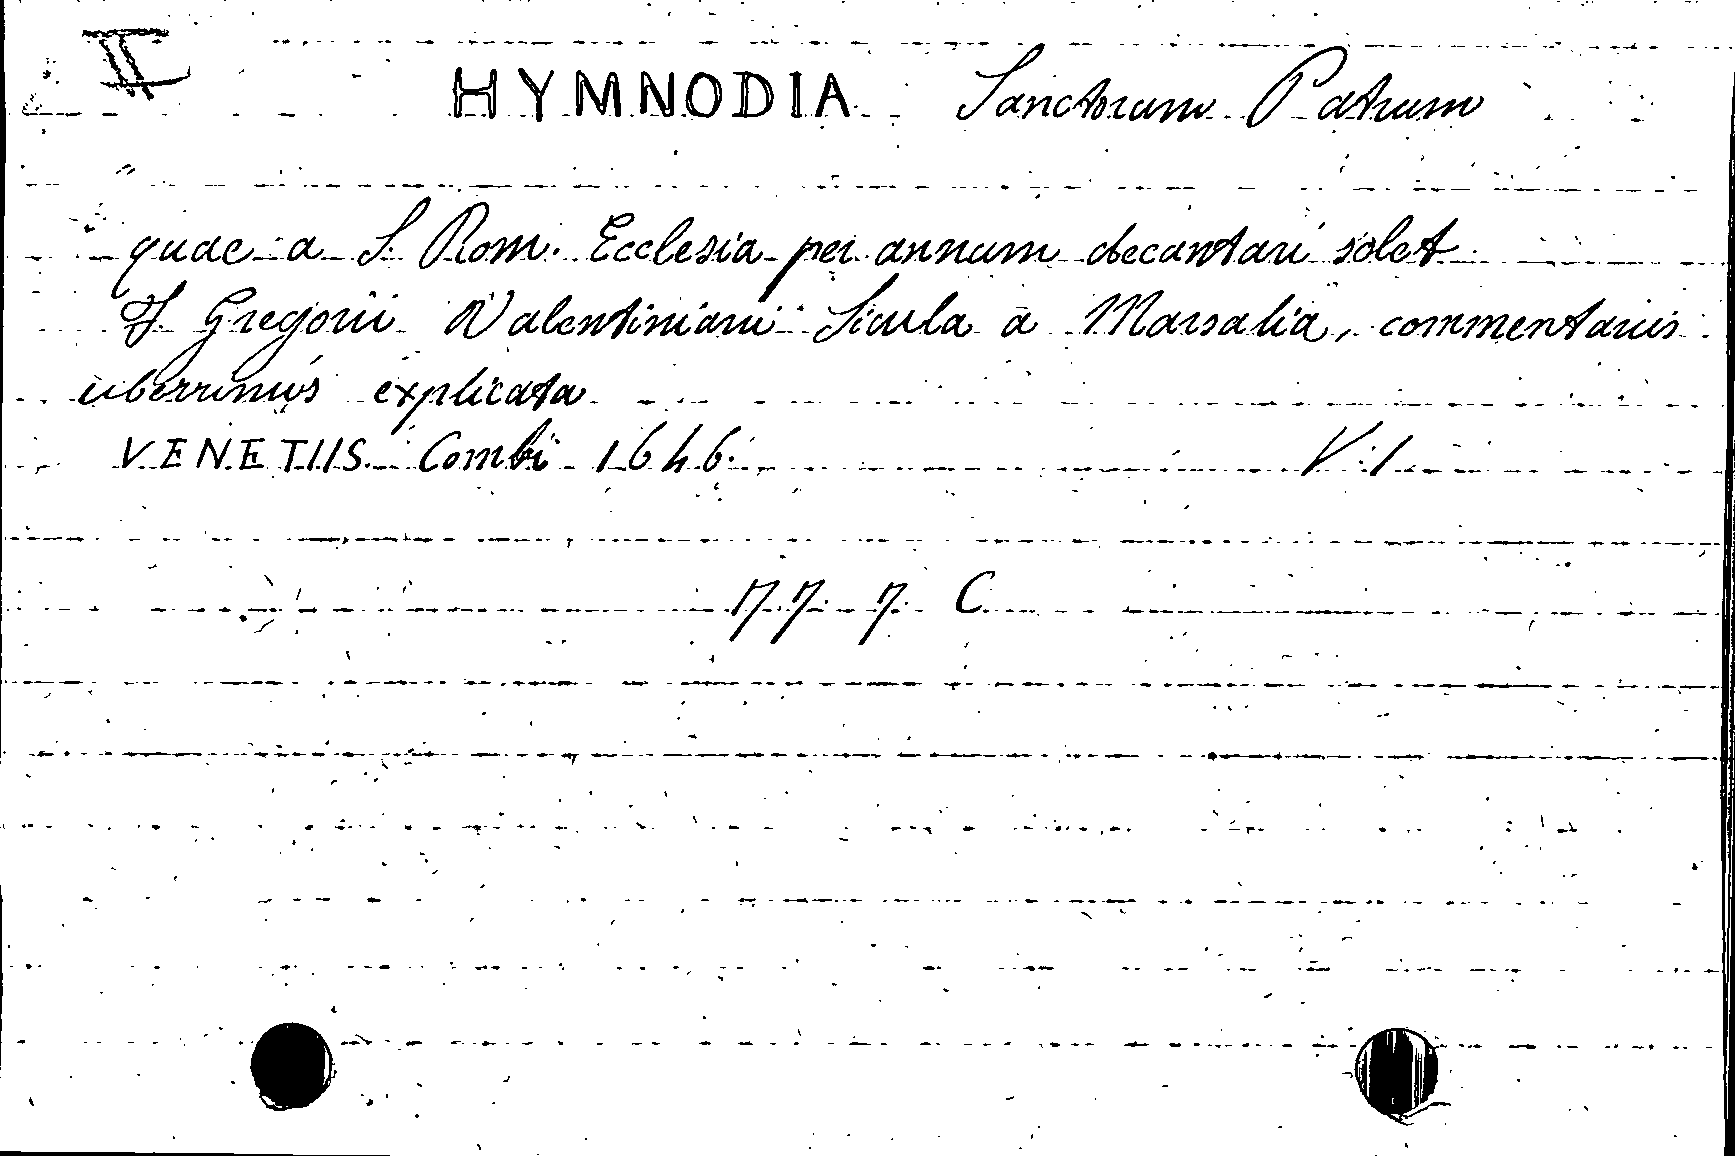 II
HYMNODIA Sanctorum Patrum
quae a S. Rom. Ecclesia per annum decantari solet
F. Gregorii Valentiniani Sicula a Marsalia, commentariis
uberrimis explicata
VENETIIS Combi 1646. V. 1
17. 7. 7. C